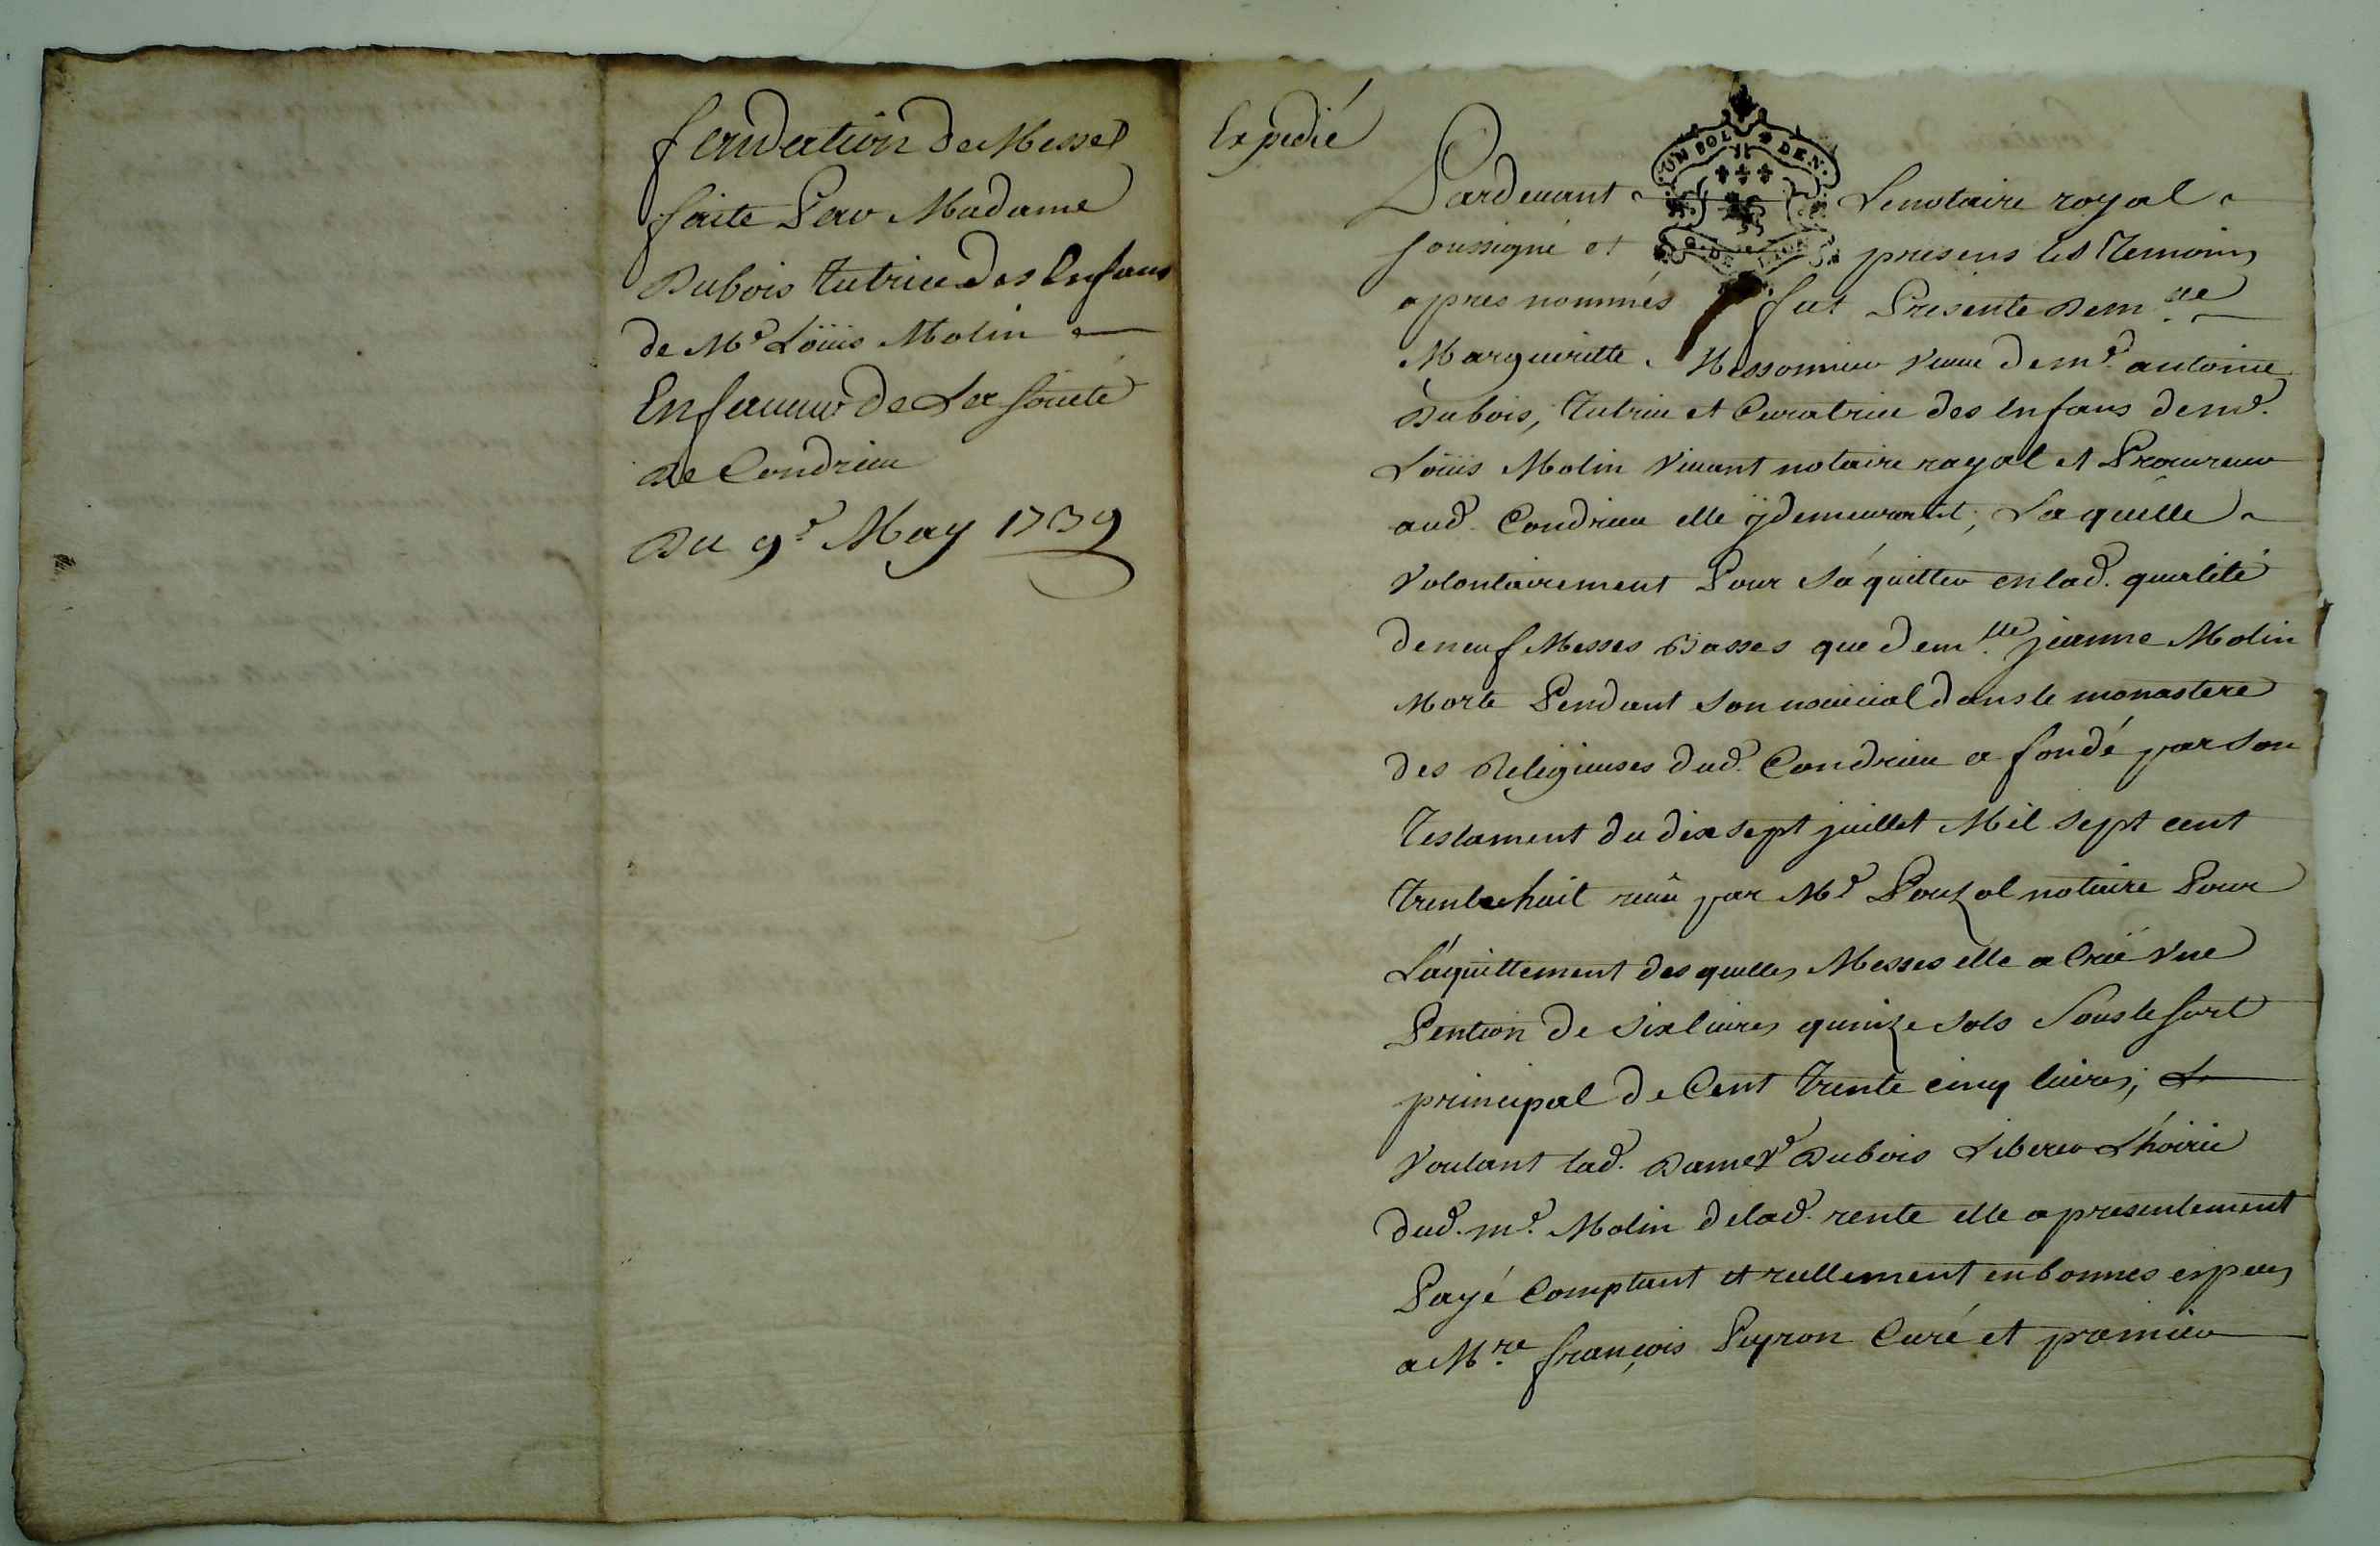 fondation de Messes
faite Par Madame
Dubois tutrice des Enfans
de Me Loüis Molin
En faveur de La Société
De Condrieu
Du 9e May 1739
Expedié
UN SOL DEN.
G. DE LION
Pardevant Le notaire royal
soussigné et presens les Temoins
apres nommés fut Presente Demlle
Margueritte Messonnier veuve de me. antoine
Dubois, Tutrice et Curatrice des Enfans de me.
Loüis Molin vivant notaire royal et Procureur
aud. Condrieu elle ÿ demeurant, Laquelle
volontairement Pour s'aquitter en lad. qualité
de neuf Messes Basses que demlle. jeanne Molin
Morte Pendant son noviciat dans le monastere
des Religieuses dud. Condrieu a fondé par son
Testament du dix sept juillet Mil sept cent
trente huit reçu par Me Pouzol notaire Pour
L'aquittement desquelles Messes elle a Créé Une
Pention de six livres quinze sols Sous le sort
principal de Cent trente cinq livres, &
Voulant lad. Dame ve Dubois Liberer L'hoirie
dud. me. Molin de lad. rente elle a presentement
Payé Comptant et reellement en bonnes especes
a Mre françois Peyron Curé et premier